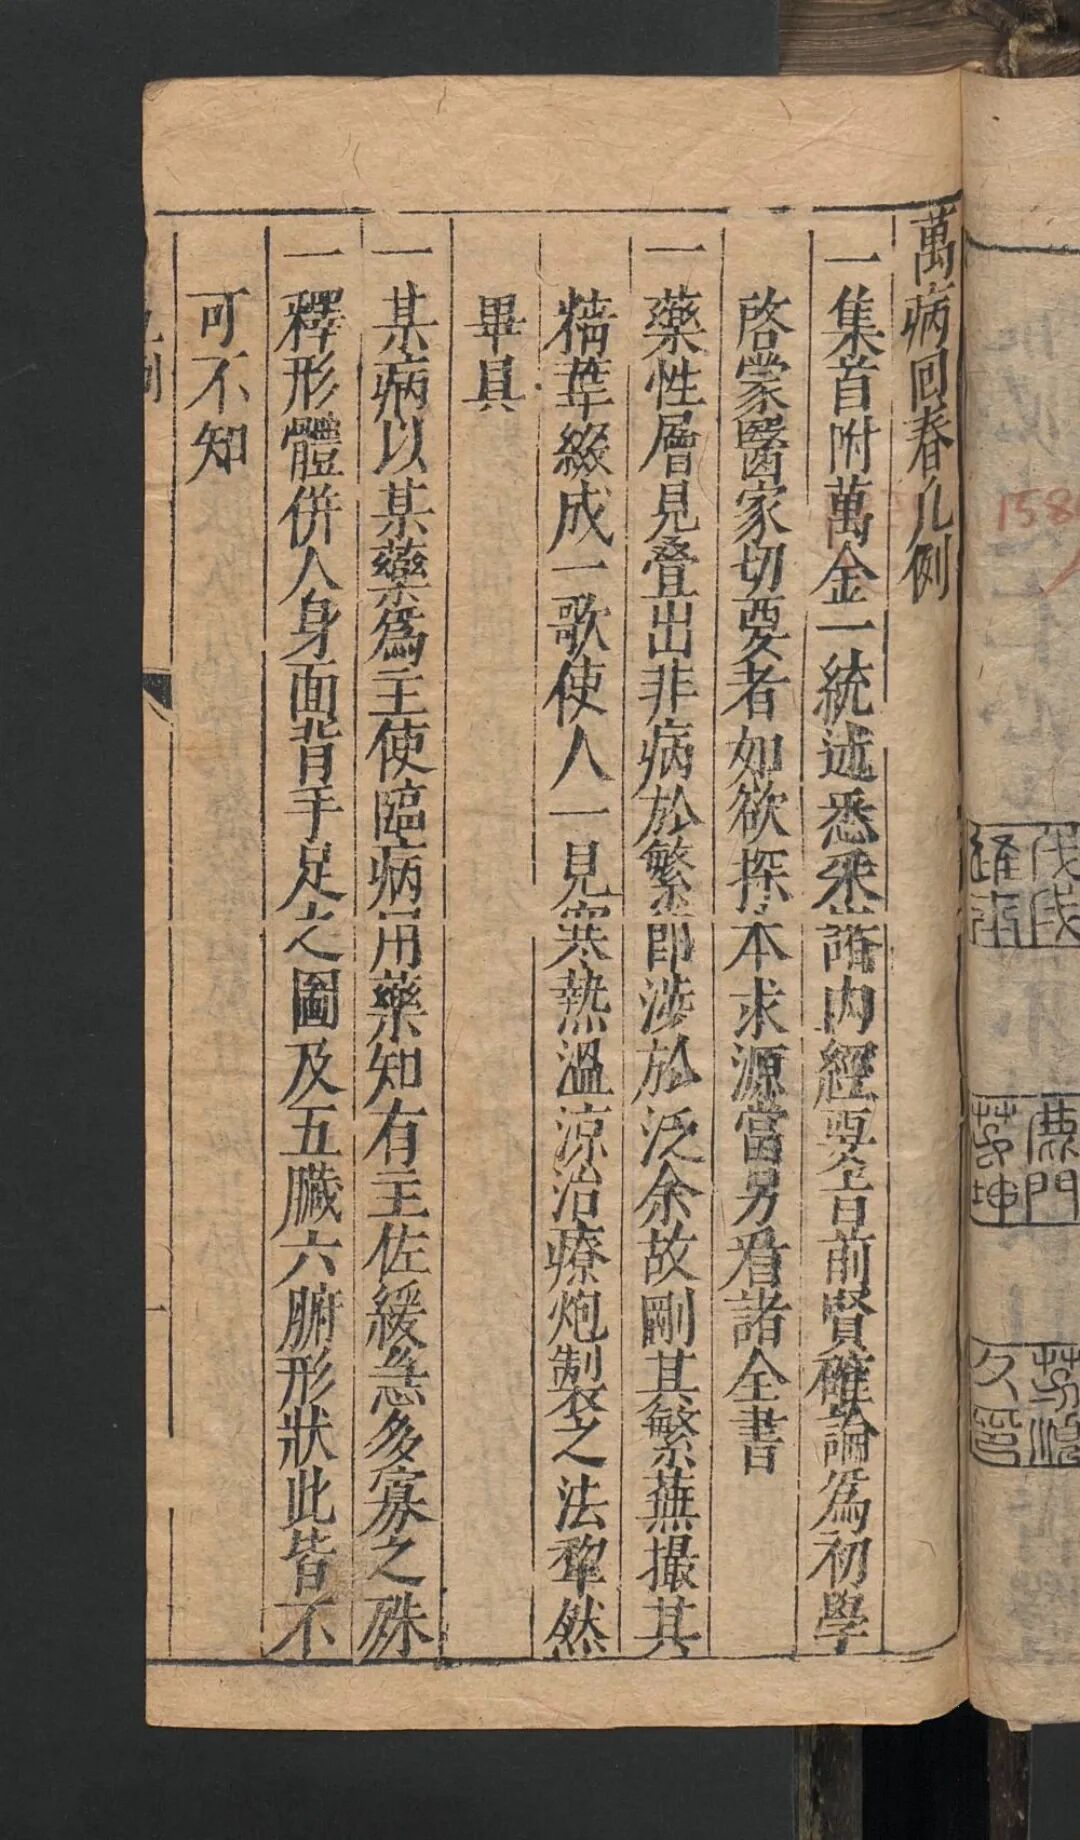 萬病回春凡例
一集首附萬金一統述悉采諸內經要旨前賢確論爲初學
啓蒙醫家切要者如欲探本求源當另看諸全書
一藥性層見叠出非病於繁即涉於泛余故剛其繁蕪撮其
精華綴成一歌使人一見寒熱溫涼治療炮製之法犂然
畢具
一某病以某藥爲主使臨病用藥知有主佐緩急多寡之殊
一釋形體併人身面背手足之圖及五臟六腑形狀此皆不
可不知
凡例
一
158
鹿門